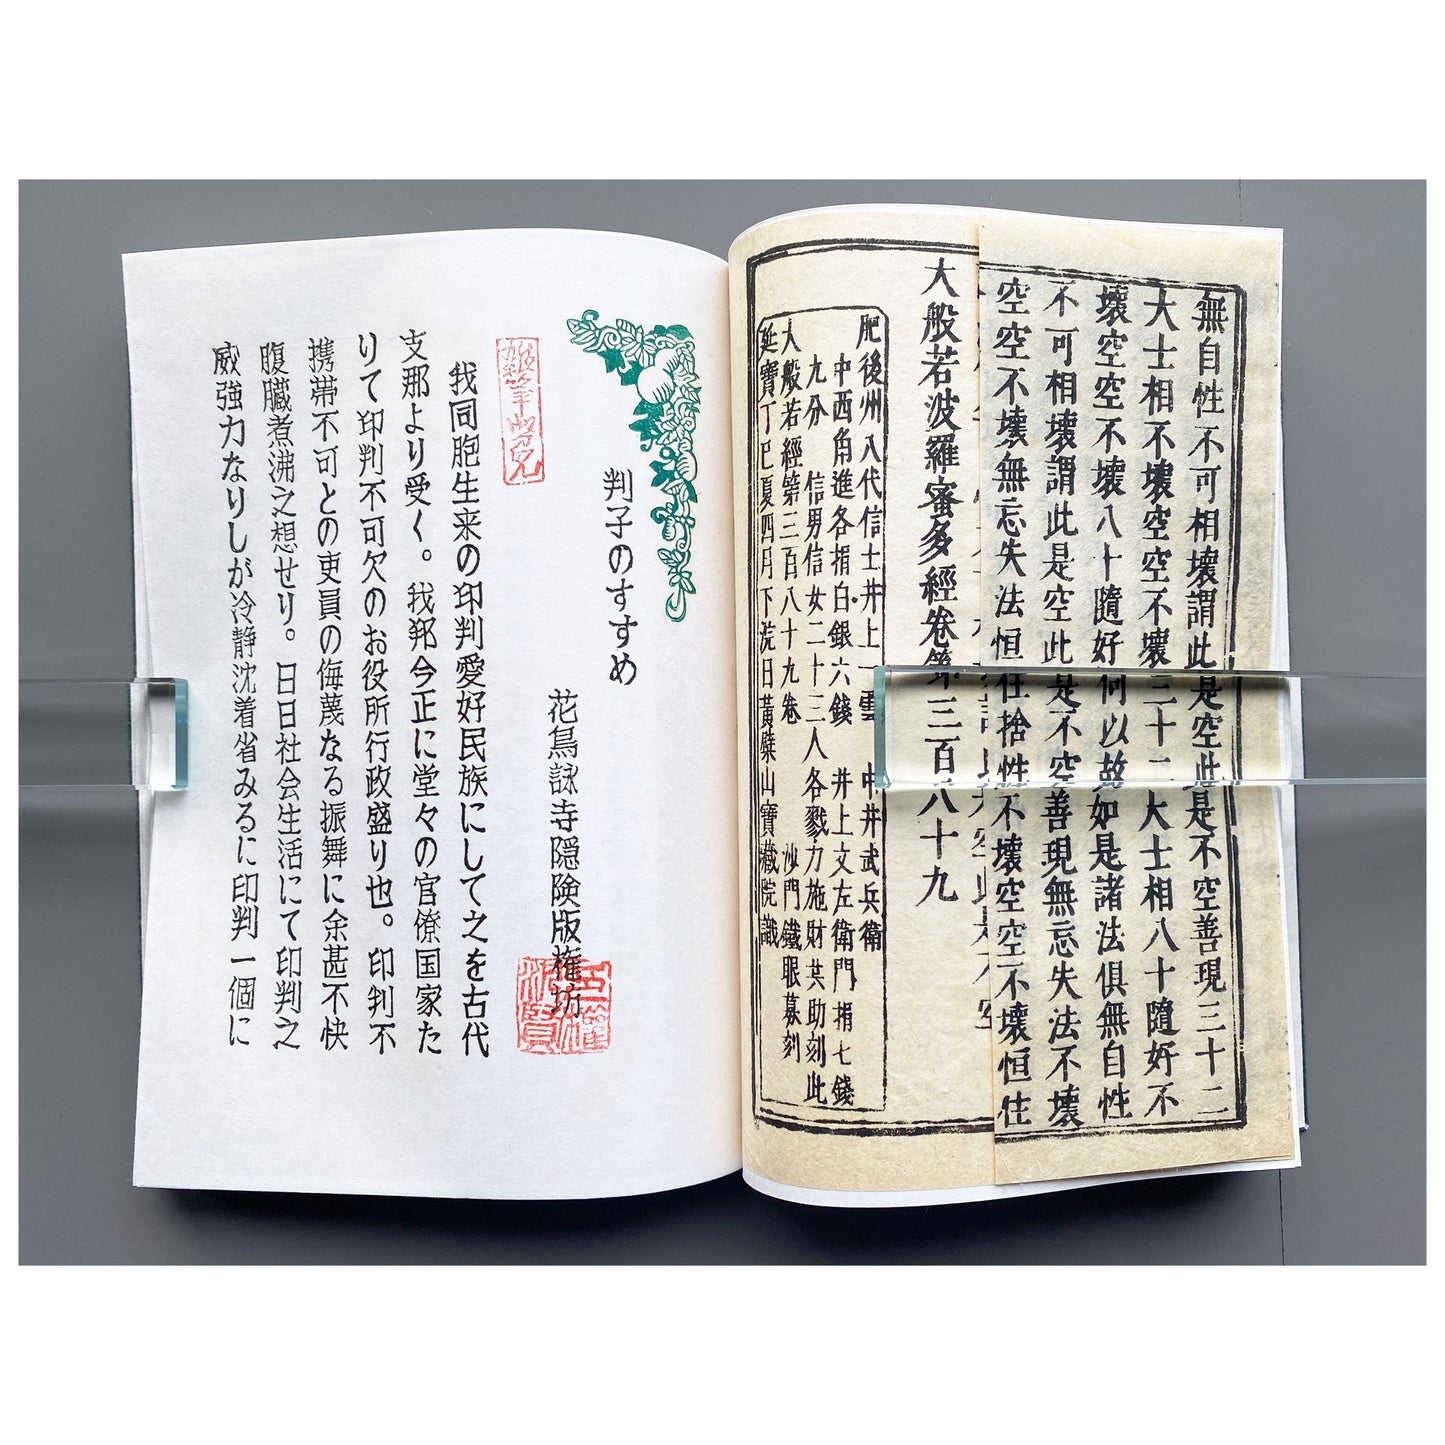 無自性不可相壞謂此是空此是不空善現三十二
大士相不壞空空不壞三十二大士相八十隨好不
壞空空不壞八十隨好何以故如是諸法俱無自性
不可相壞謂此是空此是不空善現無忘失法不壞
空空不壞無忘失法恒住捨性不壞空空不壞恒住
大般若波羅蜜多經卷第三百八十九
肥後州八代信士井上一雲 中井武兵衛
中西角進各捐白銀六錢 井上文左衛門捐七錢
九分 信男信女二十三人各戮力施財共助刻此
大般若經第三百八十九卷 沙門鐵眼募刻
延寶丁巳夏四月下浣日黃檗山寶藏院識
判子のすすめ
花鳥詠寺隠険版権坊
我同胞生来の印判愛好民族にして之を古代
支那より受く。我邦今正に堂々の官僚国家た
りて印判不可欠のお役所行政盛り也。印判不
携帯不可との吏員の侮蔑なる振舞に余甚不快
腹臓煮沸之想せり。日日社会生活にて印判之
威強力なりしが冷静沈着省みるに印判一個に